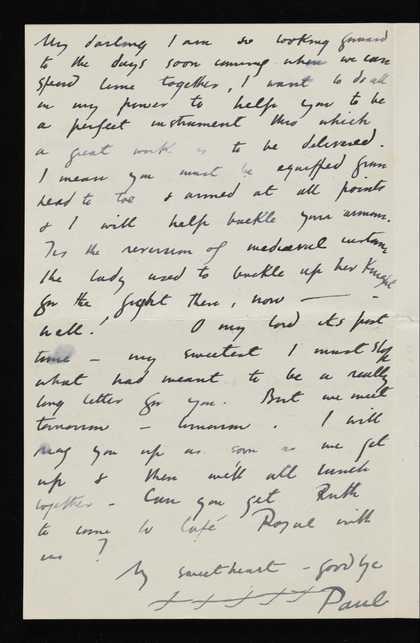 My darling I am so looking forward
to the days soon coming when we can
spend time together, I want to do all
in my power to help you to be
a perfect instrument thro which
a great work is to be delivered.
I mean you must be equipped from
head to toe & armed at all points
& I will help buckle your armour.
'Tis the reversion of mediaeval custom
the lady used to buckle up her Knight
for the fight then, now —
well! O my lord its post
time — my sweetest I must stop
what had meant to be a really
long letter for you. But we meet
tomorrow – tomorrow. I will
ring you up as soon as we get
up & then we'll all lunch
together – Can you get Ruth
to come to Café Royal with
us?
My sweetheart – goodbye
Paul